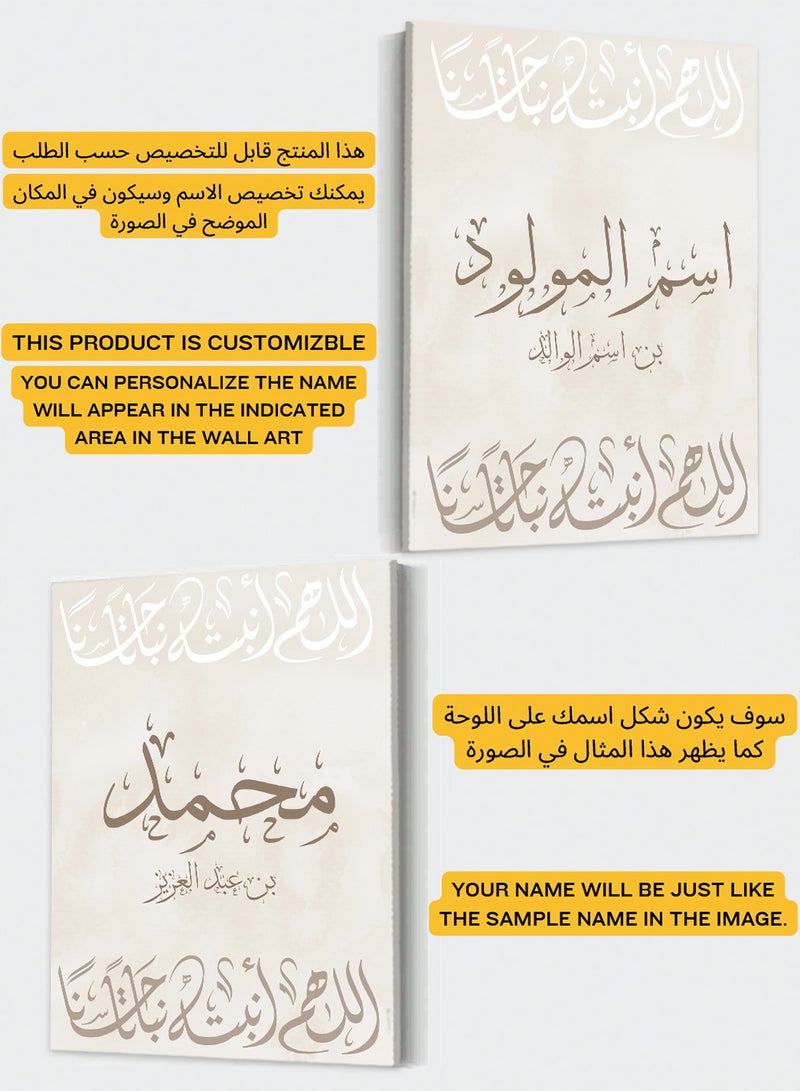 اللهم أنبته نباتًا حسنًا
هذا المنتج قابل للتخصيص حسب الطلب
يمكنك تخصيص الاسم وسيكون في المكان
الموضح في الصورة
اسم المولود
بن اسم الوالد
THIS PRODUCT IS CUSTOMIZBLE
YOU CAN PERSONALIZE THE NAME
WILL APPEAR IN THE INDICATED
AREA IN THE WALL ART
اللهم أنبته نباتًا حسنًا
اللهم أنبته نباتًا حسنًا
محمد
بن عبد العزيز
سوف يكون شكل اسمك على اللوحة
كما يظهر هذا المثال في الصورة
YOUR NAME WILL BE JUST LIKE
THE SAMPLE NAME IN THE IMAGE.
اللهم أنبته نباتًا حسنًا